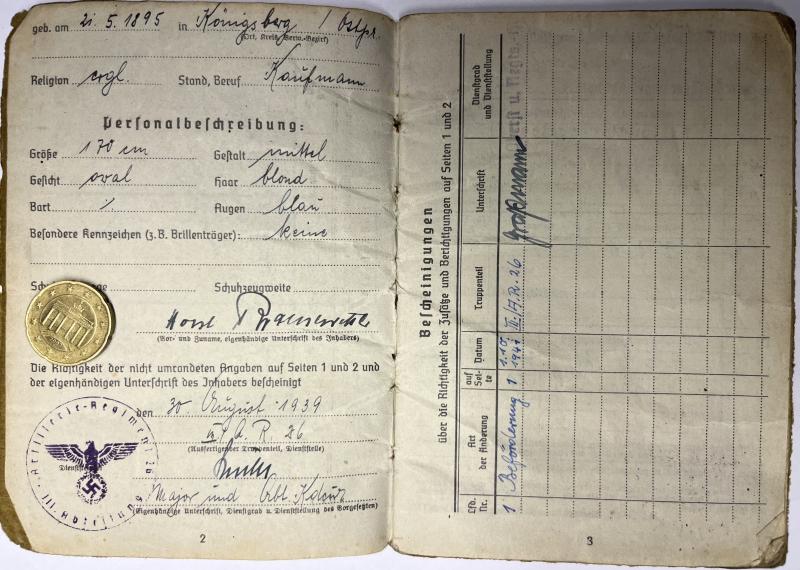 geb. am 21.5.1895 in Königsberg / Ostpr.
(Ort, Kreis, Verw.-Bezirk)
Religion evgl. Stand, Beruf Kaufmann
Personalbeschreibung:
Größe 170 cm Gestalt mittel
Gesicht oval Haar blond
Bart ⁒ Augen blau
Besondere Kennzeichen (z. B. Brillenträger): keine
Schuhzeugweite
Horst
(Vor- und Zuname, eigenhändige Unterschrift des Inhabers)
Die Richtigkeit der nicht umrandeten Angaben auf Seiten 1 und 2 und
der eigenhändigen Unterschrift des Inhabers bescheinigt
den 30. August 1939
III./A.R. 26
(Ausfertigender Truppenteil, Dienststelle)
Major und Abt. Kdeur
(Eigenhändige Unterschrift, Dienstgrad u. Dienststellung des Vorgesetzten)
III. Abteilung Artillerie-Regiment 26
2
Bescheinigungen
über die Richtigkeit der Zusätze und Berichtigungen auf Seiten 1 und 2
Lfd. Nr.
Art der Änderung
auf Seite
Datum
Truppenteil
Unterschrift
Dienstgrad und Dienststellung
1 Beförderung 1 1.10. 1941 III./A.R. 26
3